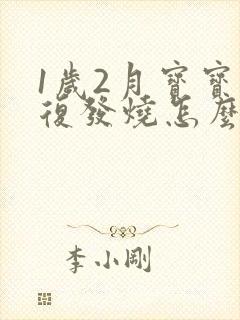 1歲2月寶寶
復發燒怎麼
李小剛